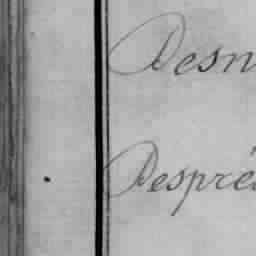 Desn
Després